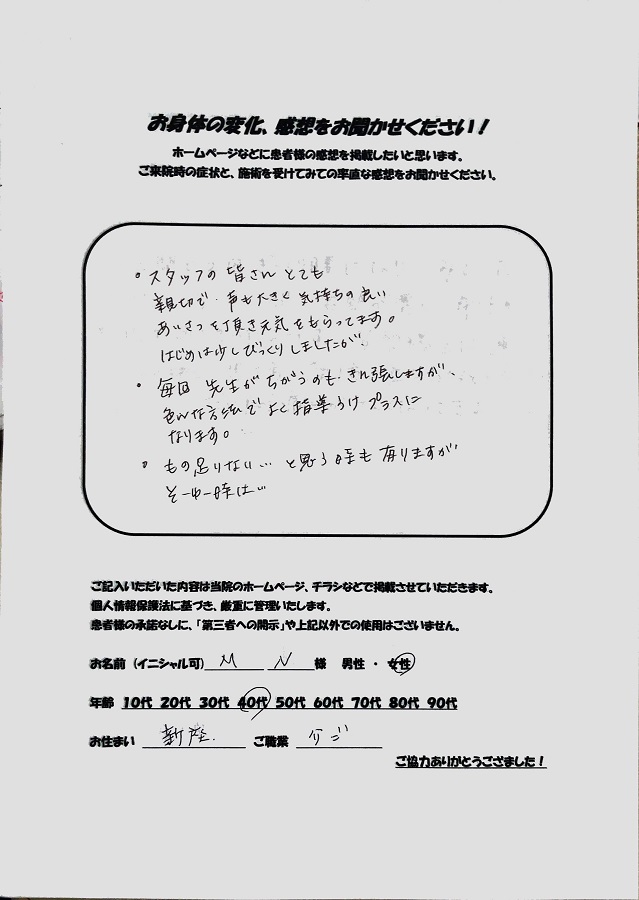 お身体の変化、感想をお聞かせください！
ホームページなどに患者様の感想を掲載したいと思います。
ご来院時の症状と、施術を受けてみての率直な感想をお聞かせください。
・スタッフの皆さんとても
親切で、声も大きく気持ちの良い
あいさつを頂き元気をもらってます。
はじめは少しびっくりしましたが、
・毎回 先生がちがうのも、きん張しますが、
色んな方法でよく指導うけプラスに
なります。
・もの足りない… と思う時も有りますが
そーゆー時は…
ご記入いただいた内容は当院のホームページ、チラシなどで掲載させていただきます。
個人情報保護法に基づき、厳重に管理いたします。
患者様の承諾なしに、「第三者への開示」や上記以外での使用はございません。
お名前（イニシャル可） M N 様 男性 ・ 女性
年齢 10代 20代 30代 40代 50代 60代 70代 80代 90代
お住まい 新座. ご職業 介ご
ご協力ありがとうござました！